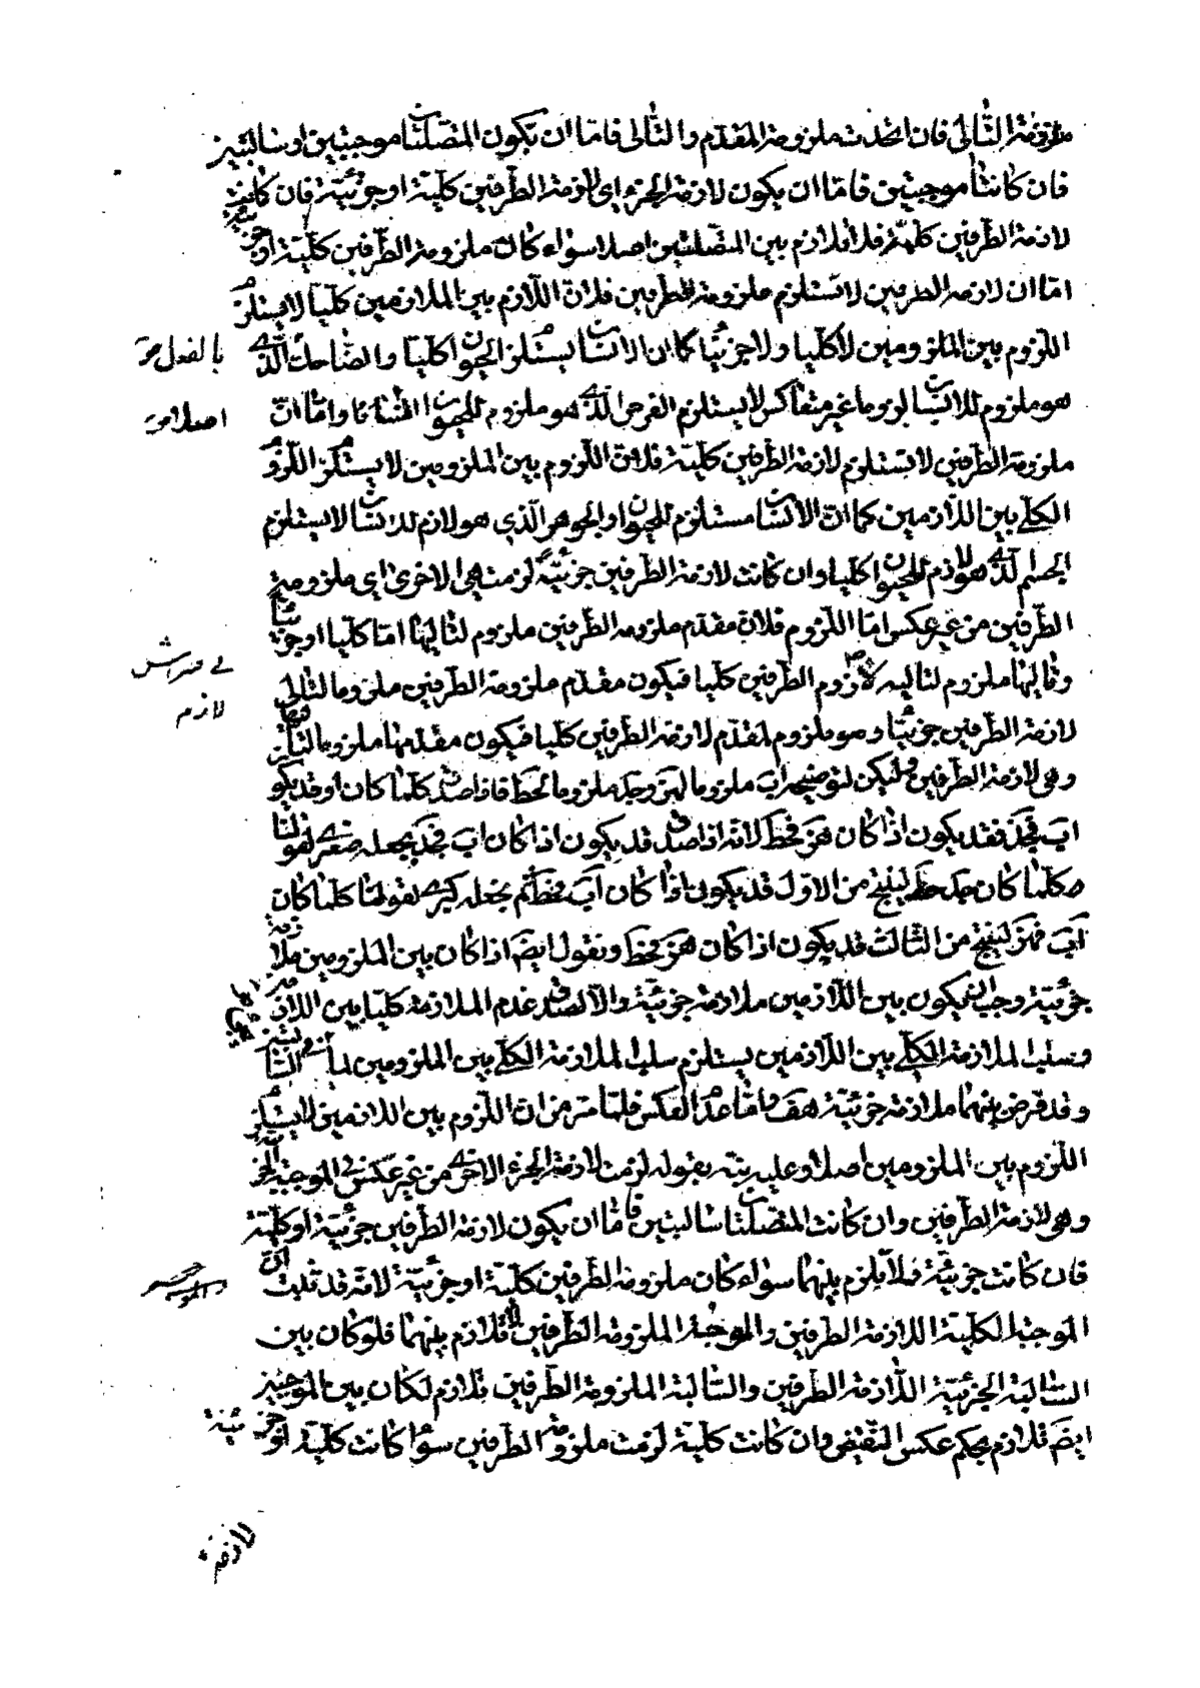 ملزومة التالى فان اتحدت ملزومة المقدم والتالى فاما ان يكون المتصلتا موجبتين او سالبتين
فان كانتا موجبتين فاما ان يكون لازمة الجزء اى لازمة الطرفين كلية او جزئية فان كانت
لازمة الطرفين كلية فلا تلازم بين المتصلتين اصلا سواء كان ملزومة الطرفين كلية او جزئية
اما ان لازمة الطرفين لا تستلزم ملزومة الطرفين فلان اللازم بين الملازمين كليا لا يستلزم
اللزوم بين الملزومين لا كليا ولا جزئيا كما ان الانسان يستلزم الحيوان كليا والضاحك الذى
بالفعل
هو ملزوم للانسان لزوما غير منعاكس لا يستلزم الفرس الذى هو ملزوم للحيوان واما ان
اصلا
ملزومة الطرفين لا تستلزم لازمة الطرفين كلية فلان اللزوم بين الملزومين لا يستلزم اللزوم
الكلى بين اللازمين كما ان الانسان مستلزم للحيوان والجوهر الذى هو لازم للانسان لا يستلزم
الجسم الذى هو لازم للحيوان كليا وان كانت لازمة الطرفين جزئية لزمت هى الاخرى اى ملزومة
الطرفين من غير عكس اما اللزوم فلان مقدم ملزومة الطرفين ملزوم لتاليها اما كليا او جزئيا
وتاليها ملزوم لتالى لازمة الطرفين كليا فيكون مقدم ملزومة الطرفين ملزوما لتالى
لازم
لازمة الطرفين جزئيا وهو ملزوم لمقدم لازمة الطرفين كليا فيكون مقدمها ملزوما لتاليها
وهى لازمة الطرفين وليكن لتوضيحه اب ملزوما لهز وجد ملزوما لحط فاذا صدق كلما كان او قد يكون
اب فجد فقد يكون اذا كان هز فحط لانه اذا صدق قد يكون اذا كان اب فجد نجعله صغرى لقولنا
كلما كان جد فحط لينتج من الاول قد يكون اذا كان اب فحط ثم نجعله كبرى لقولنا كلما كان
اب فهز لينتج من الثالث قد يكون اذا كان هز فحط ونقول ايضا اذا كان بين الملزومين ملازمة
جزئية وجب ان يكون بين اللازمين ملازمة جزئية والا لصدق عدم الملازمة كليا بين اللازمين
وسلب الملازمة الكلى بين اللازمين يستلزم سلب الملازمة الكلى بين الملزومين
وقد فرض بينهما ملازمة جزئية هف واما عدم العكس فلما مر من ان اللزوم بين اللازمين لا يستلزم
اللزوم بين الملزومين اصلا وعليه نبه بقوله لزمت لازمة الجزء الاخرى من غير عكس فى الموجبة الجزئية
وهى لازمة الطرفين وان كانت المتصلتان سالبتين فاما ان يكون لازمة الطرفين جزئية او كلية
فان كانت جزئية فلا تلزم بينهما سواء كان ملزومة الطرفين كلية او جزئية لانه قد ثبت ان
الموجبة الكلية اللازمة الطرفين والموجبة الملزومة الطرفين لا تلازم بينهما فلو كان بين
السالبة الجزئية اللازمة الطرفين والسالبة الملزومة الطرفين تلازم لكان بين الموجبتين
ايضا تلازم بحكم عكس النقيض وان كانت كلية لزمت ملزومة الطرفين سواء كانت كلية او جزئية
لازمة